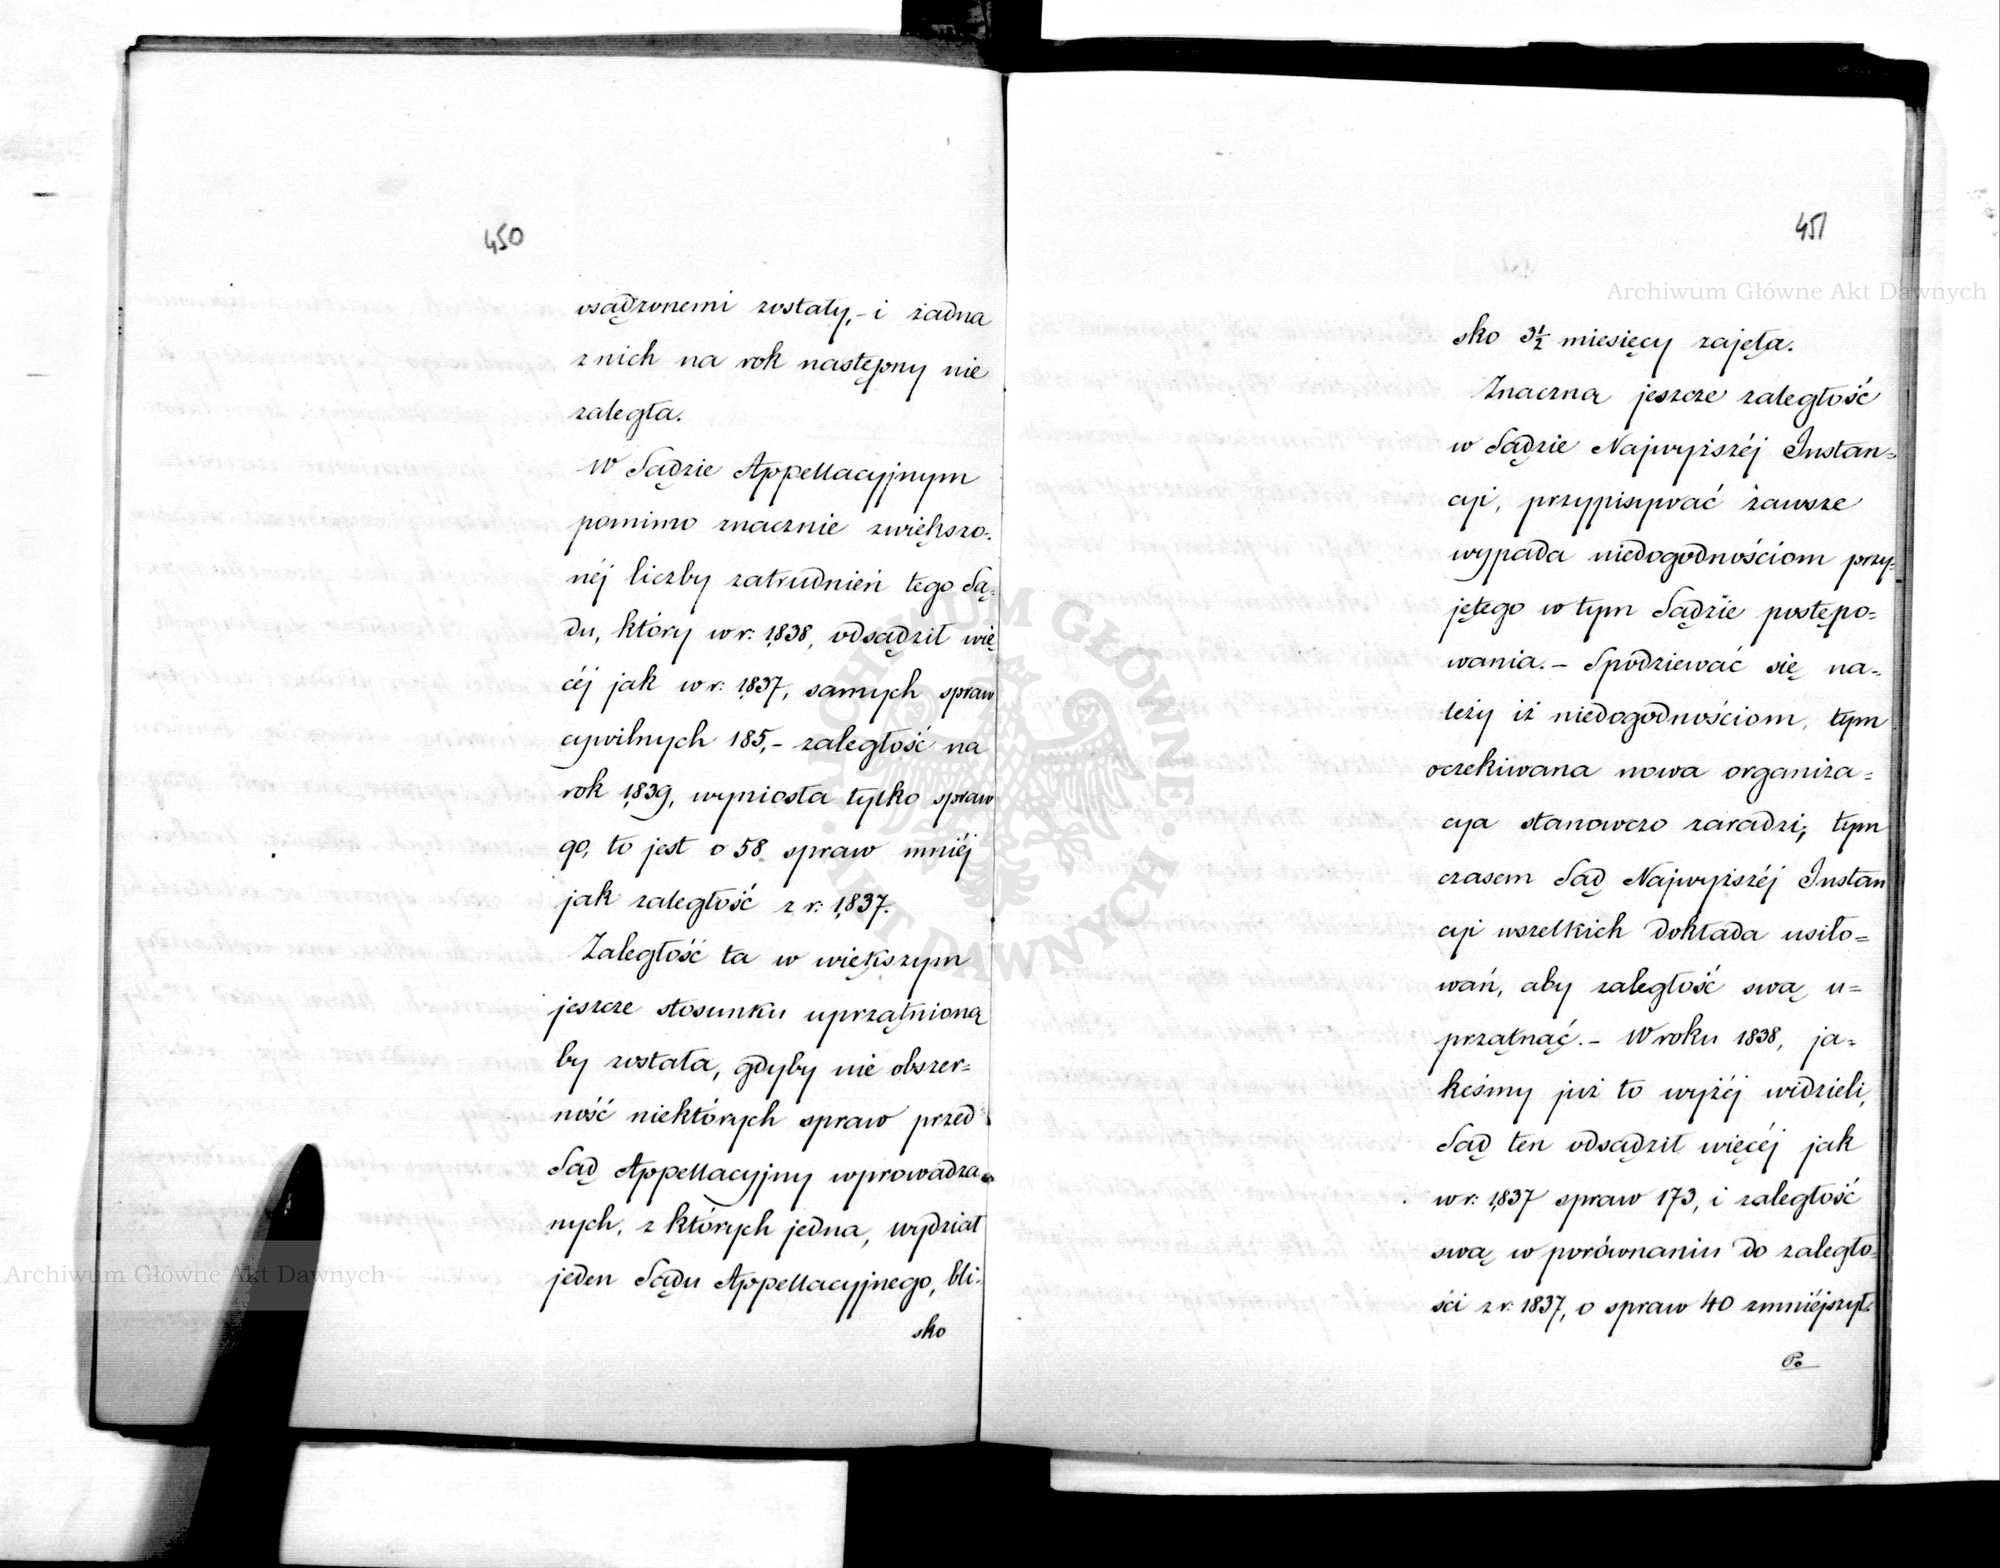 450
osądzonemi zostały, – i żadna
z nich na rok następny nie
zaległa.
W Sądzie Appellacyjnym
pomimo znacznie zwiększo-
néj liczby zatrudnień tego Są-
du, który w r: 1838, odsądził wię
céj jak w r: 1837, samych spraw
cywilnych 185, – zaległość na
rok 1839, wyniosła tylko spraw
90, to jest o 58 spraw mniéj
jak zaległość z r: 1837.
Zaległość ta w większym
jeszcze stosunku uprzątnioną
by została, gdyby nie obszer=
ność niektórych spraw przed
Sąd Appellacyjny wprowadza-
nych, z których jedna, wydział
jeden Sądu Appellacyjnego, bli-
sko
451
sko 3½ miesięcy zajęła.
Znaczna jeszcze zaległość
w Sądzie Najwyższéj Instan=
cyi, przypisywać zawsze
wypada niedogodnościom przy-
jętego w tym Sądzie postępo=
wania. – Spodziewać się na=
leży iż niedogodnościom, tym
oczekiwana nowa organiza=
cya stanowczo zaradzi; tym
czasem Sąd Najwyższéj Instan
cyi wszelkich dokłada usiło=
wań, aby zaległość swą u=
przątnąć. – W roku 1838, ja=
keśmy już to wyżéj widzieli,
Sąd ten odsądził więcéj jak
w r: 1837 spraw 173, i zaległość
swą w porównaniu do zaległo-
ści z r: 1837, o spraw 40 zmniejszył.
Po
Archiwum Główne Akt Dawnych
Archiwum Główne Akt Dawnych
ARCHIWUM GŁÓWNE AKT DAWNYCH